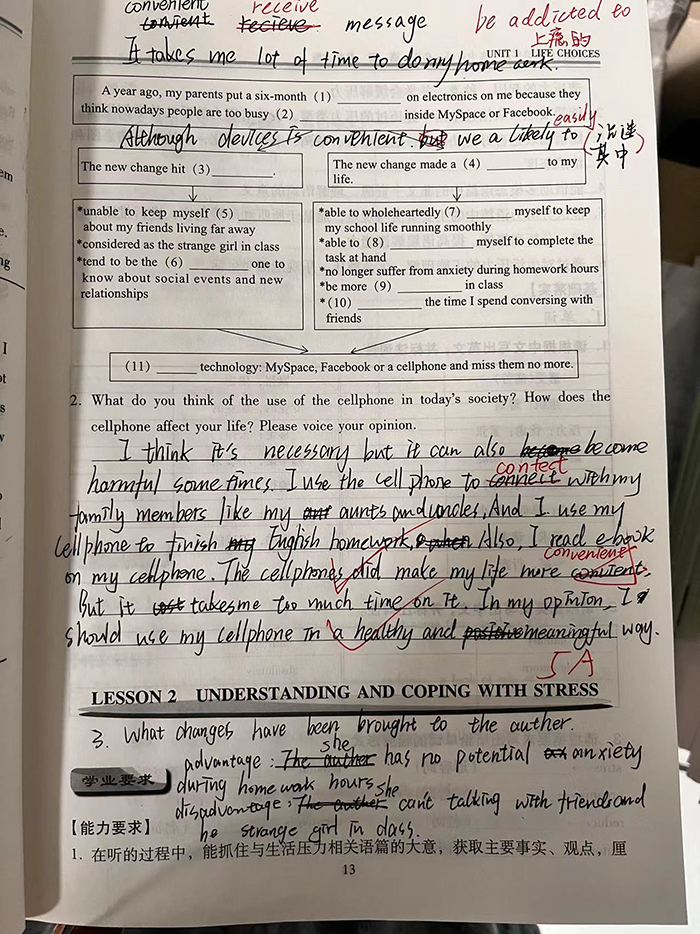 convenient receive
convient recieve. message be addicted to
上瘾的
It takes me lot of time to do my home work.
UNIT 1 LIFE CHOICES
A year ago, my parents put a six-month (1) ________ on electronics on me because they
think nowadays people are too busy (2) ________ inside MySpace or Facebook.
easily
Although devices is convenient. but we a likely to
其中
The new change hit (3) ________.
The new change made a (4) ________ to my
life.
*unable to keep myself (5) ________
about my friends living far away
*considered as the strange girl in class
*tend to be the (6) ________ one to
know about social events and new
relationships
*able to wholeheartedly (7) ________ myself to keep
my school life running smoothly
*able to (8) ________ myself to complete the
task at hand
*no longer suffer from anxiety during homework hours
*be more (9) ________ in class
*(10) ________ the time I spend conversing with
friends
(11) ________ technology: MySpace, Facebook or a cellphone and miss them no more.
2. What do you think of the use of the cellphone in today's society? How does the
cellphone affect your life? Please voice your opinion.
I think it's necessary but it can also become become
contect
harmful some times. I use the cell phone to connect with my
family members like my ant aunts and uncles, And I use my
cell phone to finish my English homework, Also, I read e-book
convenient
on my cellphone. The cellphones did make my life more convient.
But it cost takes me too much time on it. In my opinion, I
should use my cellphone in a healthy and positive meaningful way.
5A
LESSON 2 UNDERSTANDING AND COPING WITH STRESS
3. What changes have been brought to the auther.
she
advantage: The auther has no potential anxiety
学业要求
during home wak hours.
she
disadvantage: The auther can't talking with friends and
【能力要求】
be strange girl in class.
1. 在听的过程中，能抓住与生活压力相关语篇的大意，获取主要事实、观点，厘
13